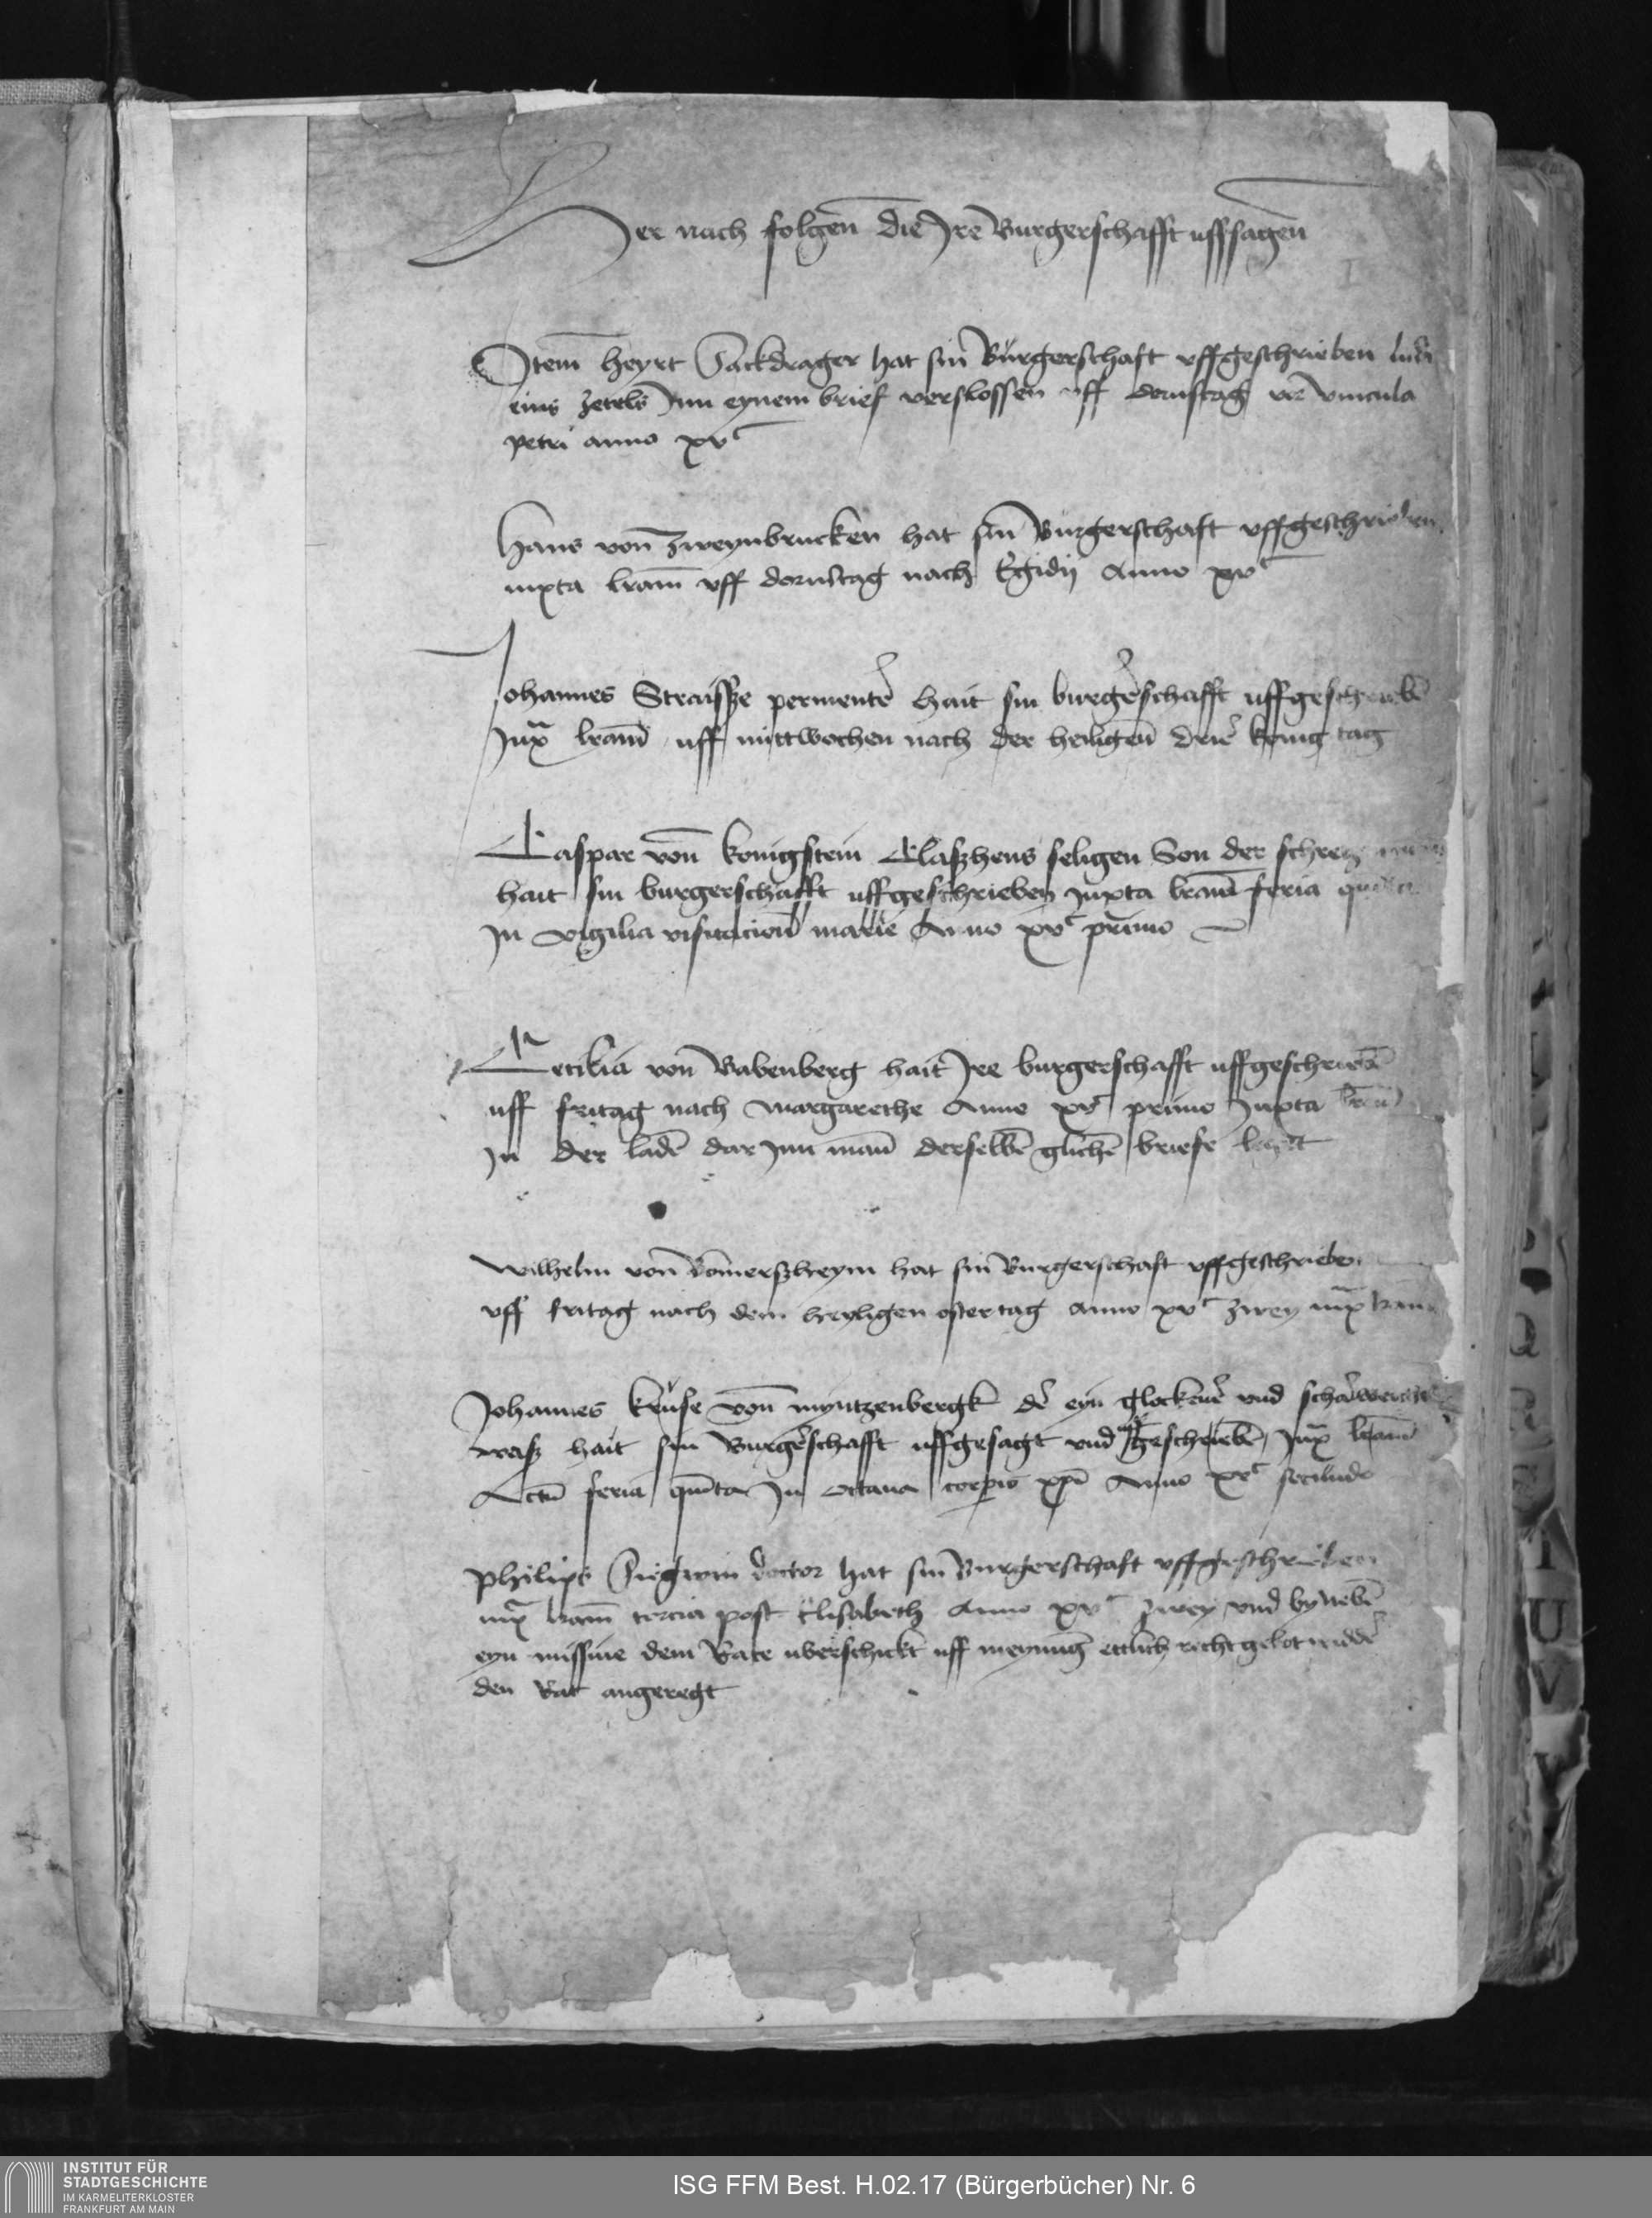 Her nach folgen die Ire Burgerschafft uffsagen
I
Item heyrt Sackdrager hat sin Burgerschaft vffgeschrieben
eins zetels Inn eynem brief verslossen vff dornstag vor vincula
petri anno xvc
Hans von Zweynbrucken hat sin Burgerschaft vffgeschrieben
iuxta lram vff dornstag nach Egidij Anno xvc
Johannes Straisse permenter hait sin burgerschafft uffgeschrieben
Jux lram uff mittwochen nach der heiligen drier konig tag
Caspar von konigstein Claszhens seligen Son der
hait sin burgerschafft uffgeschrieben Juxta lram feria
In vigilia visitacion marie Anno xvc primo
Cecilia von Babenberg hait Ire burgerschafft uffgeschrieben
uff fritag nach margarethe Anno xvc primo Juxta lram
In der laden dar Inn man derselben glichen briefe legett
Wilhelm von Bomerszheym hat sin Burgerschaft vffgeschrieben
vff fritag nach dem heyligen ostertag anno xvc zwey iux lram
Johannes kruse von myntzenbergk der eyn glockener vnd
wasz hait sin Burgerschafft uffgesagt vnd uffgeschrieben Jux lram
Actum feria quinta In octava corpis xpi Anno xvc secundo
Philips Sigwin doctor hat sin Burgerschaft vffgeschrieben
iux lram tercia post Elisabeth Anno xvc zwey vnd byneben
eyn missiue dem Rate uberschickt uff meynung ettlich rechtgebot widder
den Rat angeregt
I
U
V
INSTITUT FÜR
STADTGESCHICHTE
IM KARMELITERKLOSTER
FRANKFURT AM MAIN
ISG FFM Best. H.02.17 (Bürgerbücher) Nr. 6